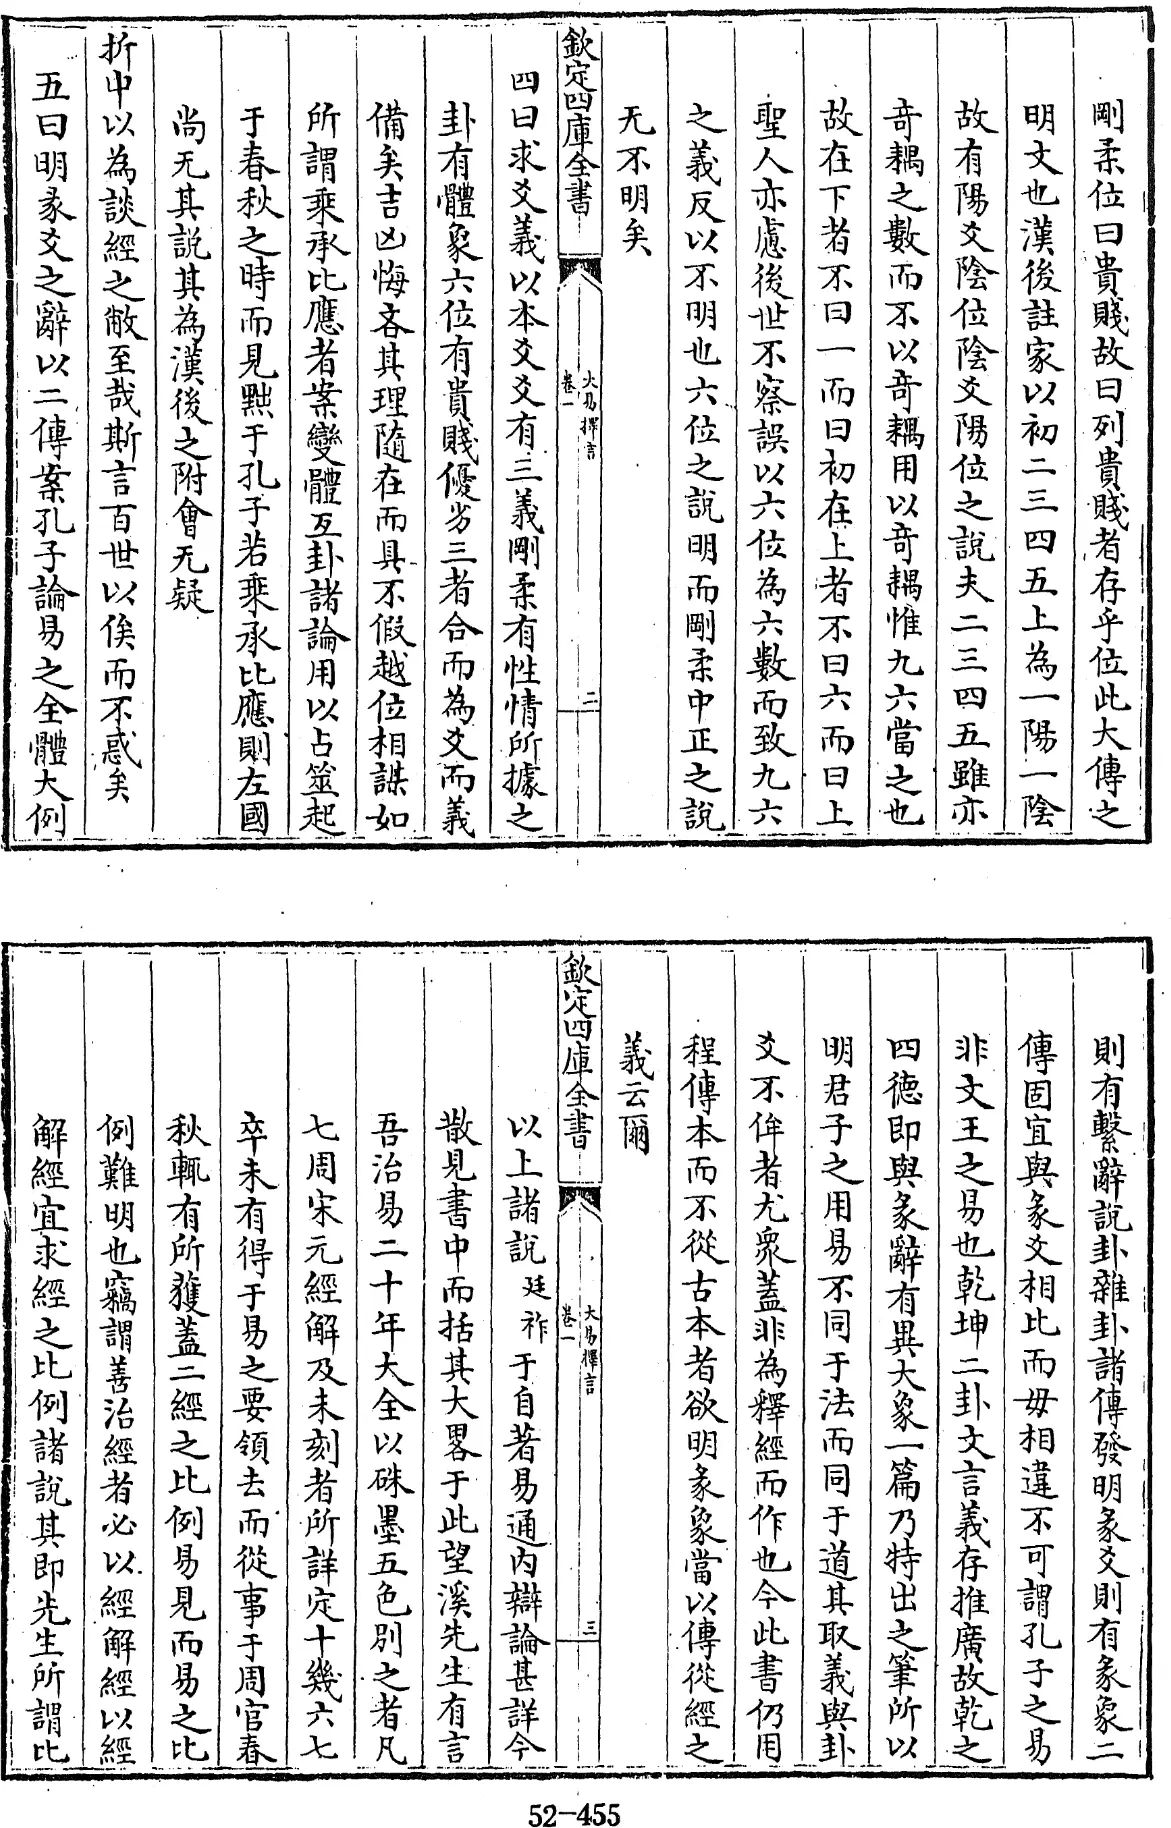 剛柔位曰貴賤故曰列貴賤者存乎位此大傳之
明文也漢後註家以初二三四五上為一陽一陰
故有陽爻陰位陰爻陽位之說夫二三四五雖亦
奇耦之數而不以奇耦用以奇耦惟九六當之也
故在下者不曰一而曰初在上者不曰六而曰上
聖人亦慮後世不察誤以六位為六數而致九六
之義反以不明也六位之說明而剛柔中正之說
无不明矣
欽定四庫全書
大易擇言
卷一
二
四曰求爻義以本爻爻有三義剛柔有性情所據之
卦有體象六位有貴賤優劣三者合而為爻而義
備矣吉凶悔吝其理隨在而具不假越位相謀如
所謂乘承比應者案變體互卦諸論用以占筮起
于春秋之時而見黜于孔子若乘承比應則左國
尚无其說其為漢後之附會无疑
折中以為談經之敝至哉斯言百世以俟而不惑矣
五曰明彖爻之辭以二傳案孔子論易之全體大例
則有繫辭說卦雜卦諸傳發明彖爻則有彖象二
傳固宜與彖爻相比而毋相違不可謂孔子之易
非文王之易也乾坤二卦文言義存推廣故乾之
四德即與彖辭有異大象一篇乃特出之筆所以
明君子之用易不同于法而同于道其取義與卦
爻不侔者尤衆蓋非為釋經而作也今此書仍用
程傳本而不從古本者欲明彖象當以傳從經之
義云爾
欽定四庫全書
大易擇言
卷一
三
以上諸說廷祚于自著易通內辯論甚詳今
散見書中而括其大畧于此望溪先生有言
吾治易二十年大全以硃墨五色別之者凡
七周宋元經解及未刻者所詳定十幾六七
卒未有得于易之要領去而從事于周官春
秋輒有所獲蓋二經之比例易見而易之比
例難明也竊謂善治經者必以經解經以經
解經宜求經之比例諸說其即先生所謂比
52-455